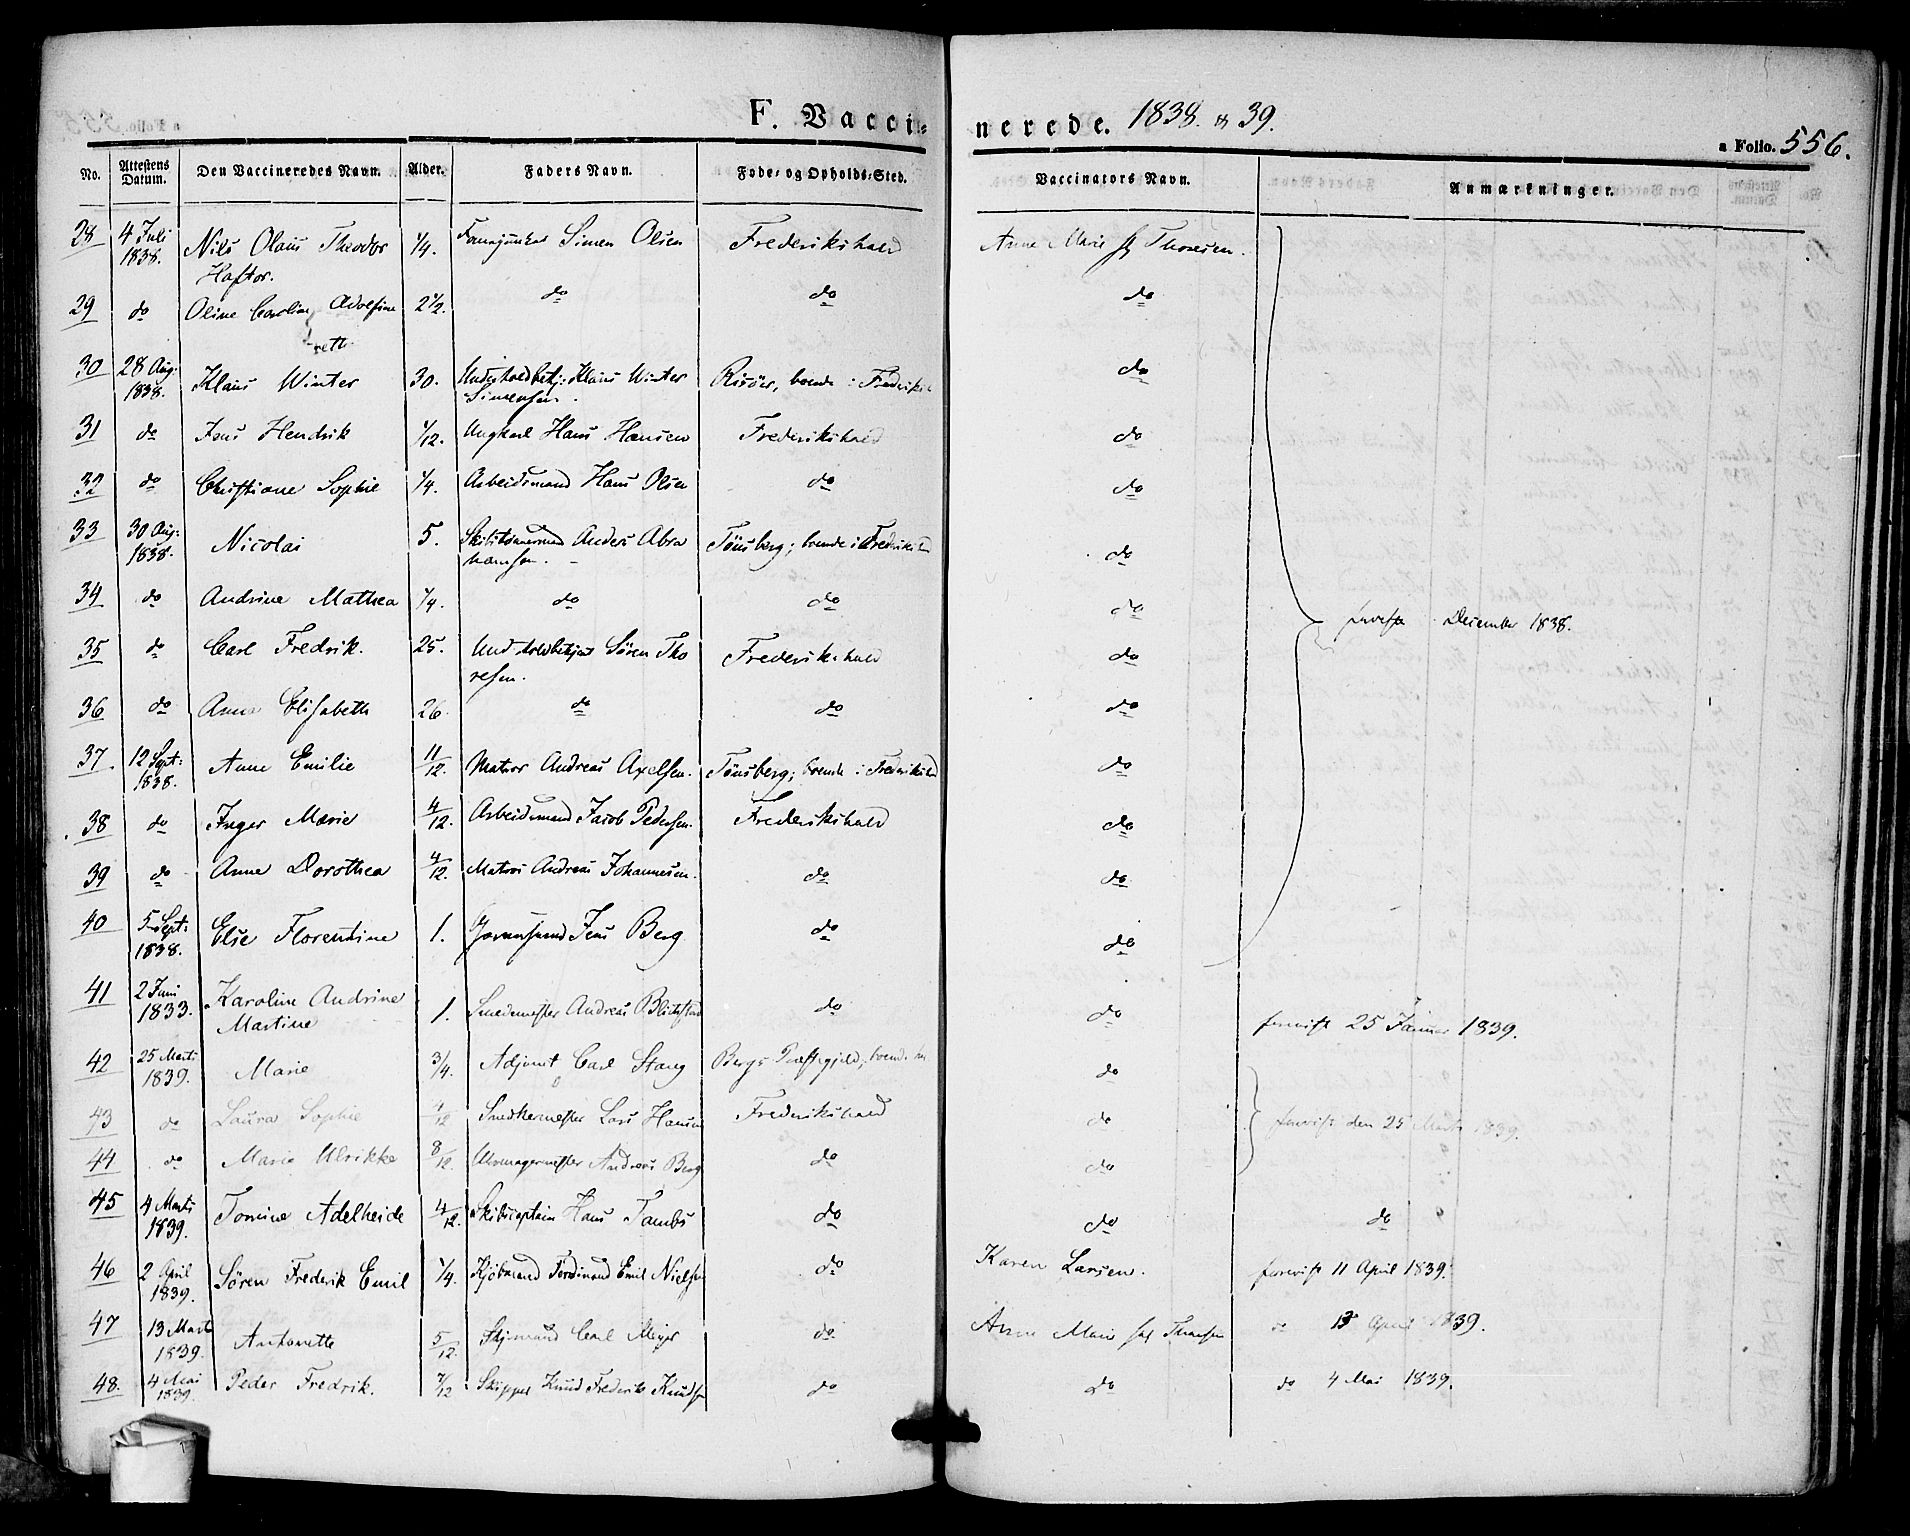 F. Vacci-
nerede. 1838 & 39.
a Folio. 556.
No.
Attestens Datum.
Den Vaccineredes Navn.
Alder.
Faders Navn.
Føde- og Opholds-Sted.
Vaccinators Navn.
Anmærkninger.
28 4 Juli 1838. Nils Olaus Theodor 1/4. Simen Olsen Frederikshald Anne Marie Thoresen.
Haftor.
29 do Oline Caroline Adolfine 2 1/2. do do do
30 28 Aug: 1838. Klaus Winter 30. Klaus Winter Risöer, boende i Frederiksh do
Simensen.
31 do Jens Hendrik 1/12. Ungkarl Hans Hansen Frederikshald do
32 do Christiane Sophie 1/4. Arbeidsmand Hans Olsen do do
33 30 Aug: 1838. Nicolai 5. Anders Abra Tönsberg; boende i Frederiksh do
hamsen.
34 do Andrine Mathea 1/4. do do do December 1838.
35 do Carl Fredrik. 25. Sören Tho Frederikshald do
resen.
36 do Anne Elisabeth 26. do do do
37. 12 Sept: 1838. Anne Emilie 11/12. Matros Andreas Axelsen. Tönsberg; boende i Frederiksh do
38 do Inger Marie 4/12. Arbeidsmand Jacob Pedersen. Frederikshald do
39 do Anne Dorothea 4/12. Matros Andreas Johannesen. do do
40 5 Sept: 1838. Else Florentine 1. Jens Berg do do
41 2 Juni 1833. Karoline Andrine 1. Smedemester Andreas do do 25 Januar 1839.
Martine
42 25 Marts 1839. Marie 3/4. Adjunct Carl Stang Bergs Præstegjeld, boende do
43 do Laura Sophie 4/12 Snedkermester Lars Hansen Frederikshald do den 25 Marts 1839.
44 do Marie Ulrikke 8/12. Uhrmagermester Andreas Berg do do
45 4 Marts 1839. Tomine Adelheide 4/12. Skibscaptain Hans Tambs do do do
46 2 April 1839. Sören Frederik Emil 1/4. Kjöbmand Ferdinand Emil Nielsen do Karen Larsen. 11 April 1839.
47 13 Marts 1839. Antonette 5/12. Carl Meyer do Anne Marie Thoresen do 13 April 1839.
48. 4 Mai 1839. Peder Fredrik. 7/12 Skipper Knud Frederik Knudsen do do do 4 Mai 1839.